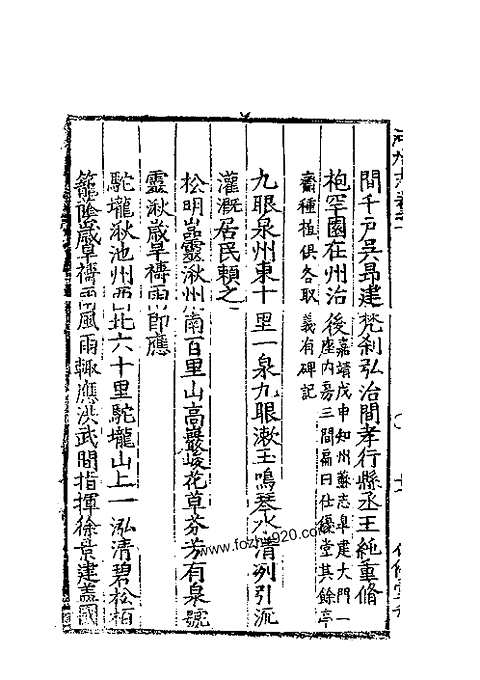 間千戸吳昻建梵刹弘治間孝行縣丞王純重脩
袍罕園在州治後嘉靖戊申知州蘇志臯建大門一
座內房三間扁曰仕優堂其餘亭
齋種植俱各取義有碑記
九眼泉州東十里一泉九眼漱玉鳴琴水清冽引流
灌溉居民賴之
松明嵓靈湫州南百里山高巖峻花草芬芳有泉號
靈湫歲旱禱雨即應
駝壠湫池州西北六十里駝壠山上一泓清碧松栢
籠陰歲旱禱雨風雨輙應洪武間指揮徐景建盖國
www.fozhu920.com